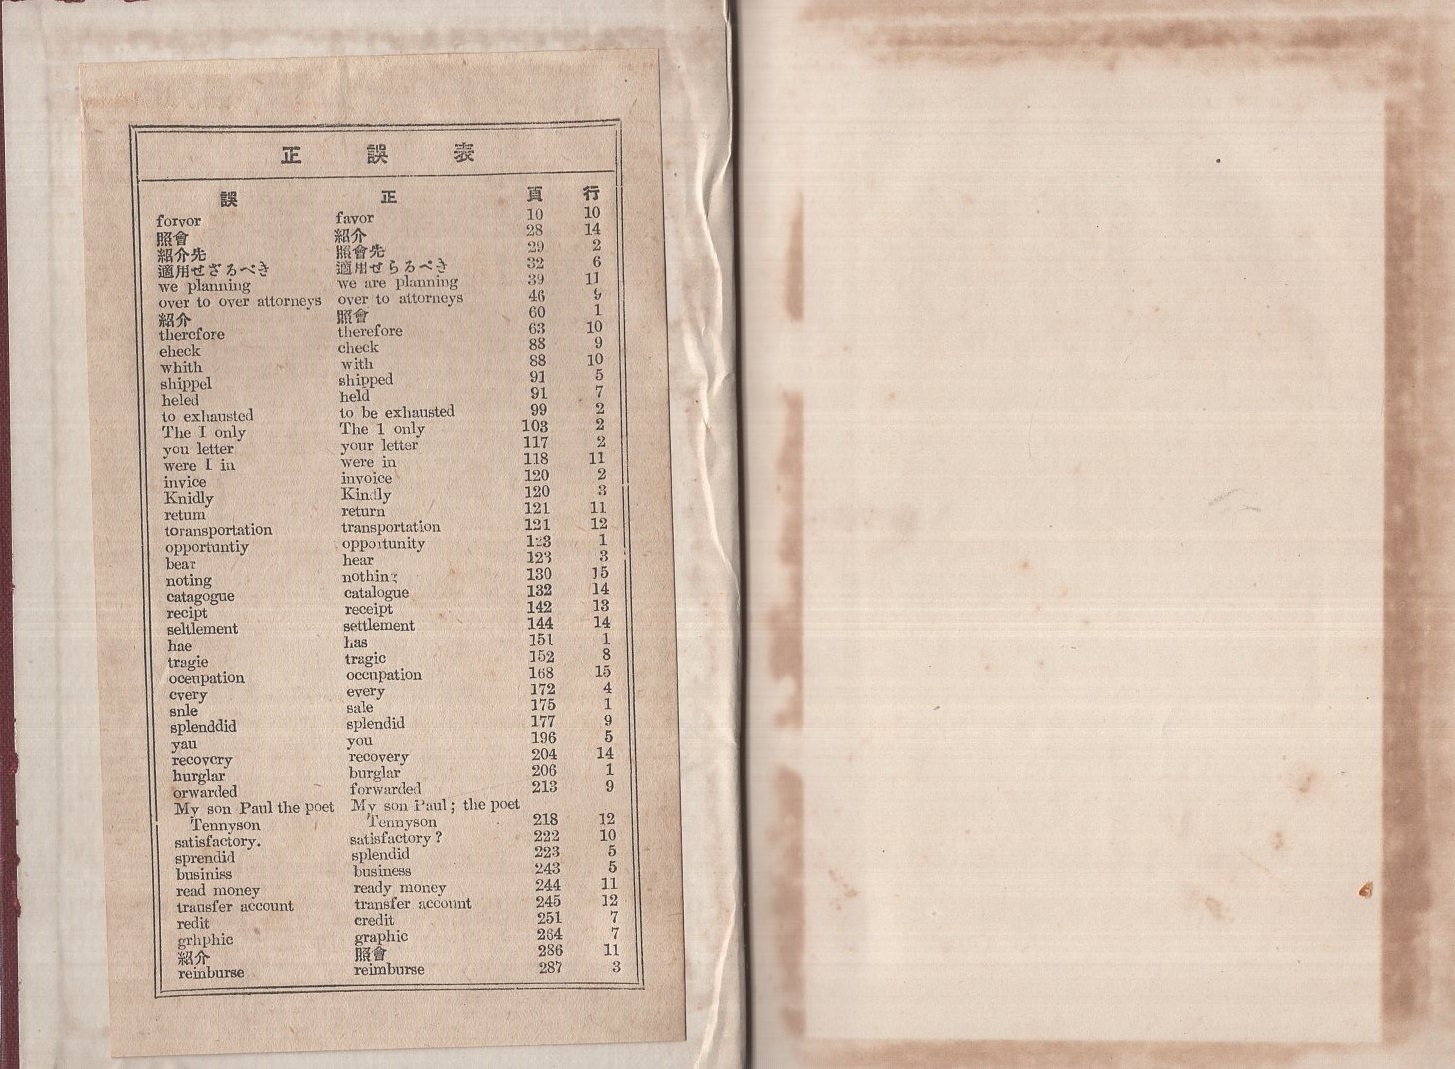 正誤表
誤 正 頁 行
forvor favor 10 10
照會 紹介 28 14
紹介先 照會先 29 2
適用せざるべき 適用せらるべき 32 6
we planning we are planning 39 11
over to over attorneys over to attorneys 46 9
紹介 照會 60 1
thercfore therefore 63 10
eheck check 88 9
whith with 88 10
shippel shipped 91 5
heled held 91 7
to exhausted to be exhausted 99 2
The I only The 1 only 103 2
you letter your letter 117 2
were I in were in 118 11
invice invoice 120 2
Knidly Kindly 120 3
retum return 121 11
toransportation transportation 121 12
opportuntiy opportunity 123 1
bear hear 123 3
noting nothing 130 15
catagogue catalogue 132 14
recipt receipt 142 13
seltlement settlement 144 14
hae has 151 1
tragie tragic 152 8
oceupation occupation 168 15
cvery every 172 4
snle sale 175 1
splenddid splendid 177 9
yau you 196 5
recovcry recovery 204 14
hurglar burglar 206 1
orwarded forwarded 213 9
My son Paul the poet My son Paul ; the poet
Tennyson Tennyson 218 12
satisfactory. satisfactory ? 222 10
sprendid splendid 223 5
businiss business 243 5
read money ready money 244 11
trausfer account transfer account 245 12
redit credit 251 7
grhphic graphic 264 7
紹介 照會 286 11
reinburse reimburse 287 3